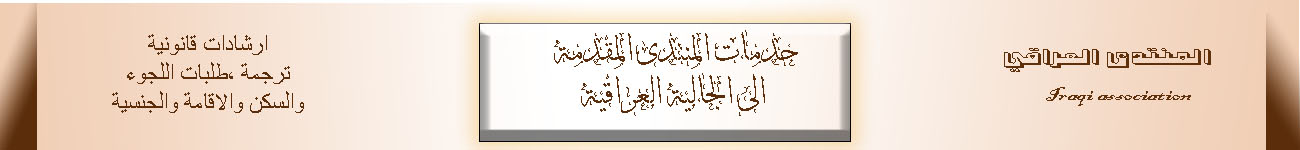 المنتدى العراقي
Iraqi association
خدمات المنتدى المقدمة
الى الجالية العراقية
ارشادات قانونية
ترجمة ،طلبات اللجوء
والسكن والاقامة والجنسية